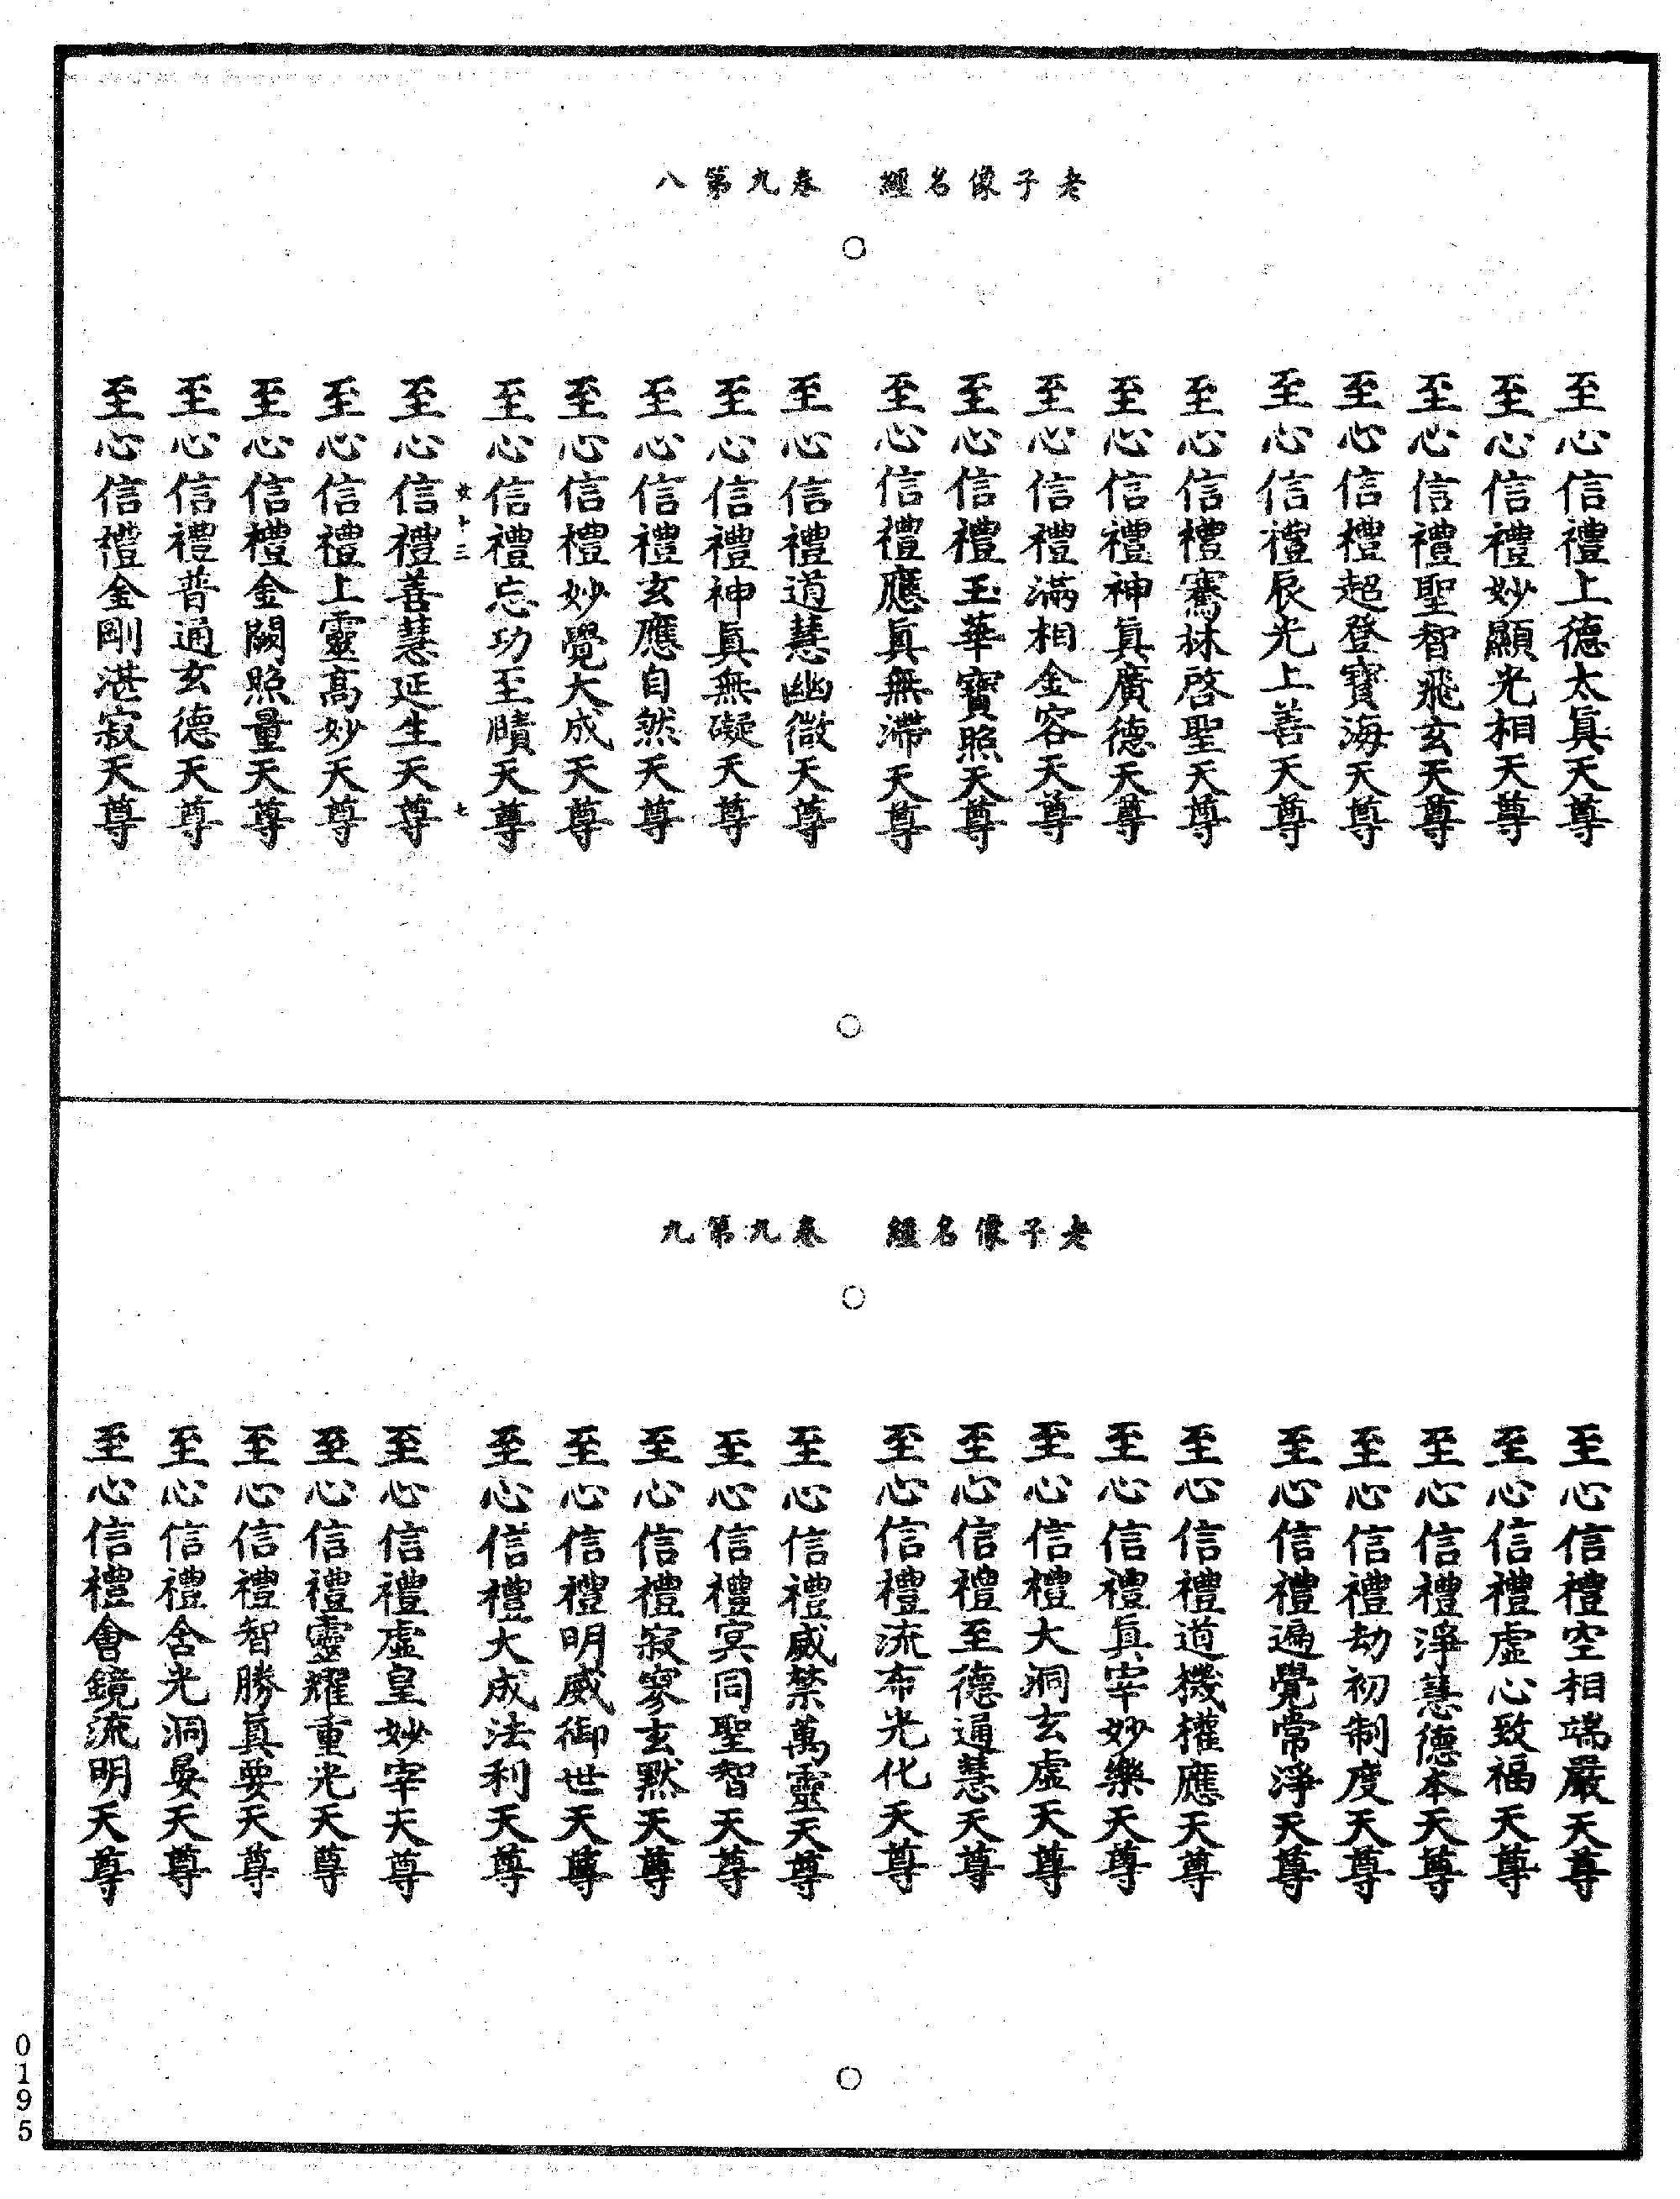 老子像名經　卷九第八
至心信禮上德太眞天尊
至心信禮妙顯光相天尊
至心信禮聖智飛玄天尊
至心信禮超登寶海天尊
至心信禮辰光上善天尊
至心信禮騫林啓聖天尊
至心信禮神眞廣德天尊
至心信禮滿相金容天尊
至心信禮玉華寶照天尊
至心信禮應眞無滯天尊
至心信禮道慧幽微天尊
至心信禮神眞無礙天尊
至心信禮玄應自然天尊
至心信禮妙覺大成天尊
至心信禮忘功至賾天尊
十三　七
至心信禮善慧延生天尊
至心信禮上靈高妙天尊
至心信禮金闕照量天尊
至心信禮普通玄德天尊
至心信禮金剛湛寂天尊
老子像名經　卷九第九
至心信禮空相端嚴天尊
至心信禮虛心致福天尊
至心信禮淨慧德本天尊
至心信禮劫初制度天尊
至心信禮遍覺常淨天尊
至心信禮道機權應天尊
至心信禮眞宰妙樂天尊
至心信禮大洞玄虛天尊
至心信禮至德通慧天尊
至心信禮流布光化天尊
至心信禮威禁萬靈天尊
至心信禮冥同聖智天尊
至心信禮寂寥玄默天尊
至心信禮明威御世天尊
至心信禮大成法利天尊
至心信禮虛皇妙宰天尊
至心信禮靈耀重光天尊
至心信禮智勝眞要天尊
至心信禮含光洞晏天尊
至心信禮會鏡流明天尊
0195